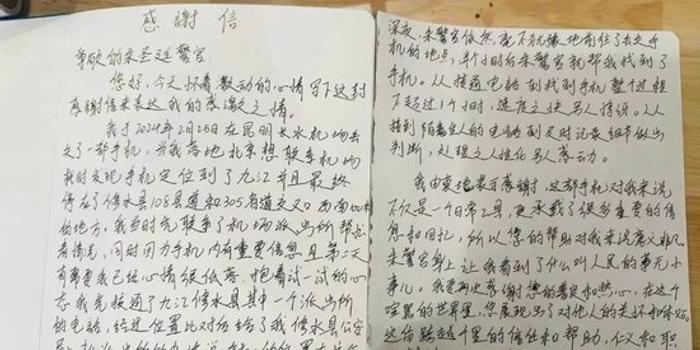 感謝信
尊敬的朱圣廷警官:
您好,今天怀着激动的心情写下这封
感谢信来表达我的感激之情。
我于2024年2月25日在昆明长水机场丢
失了一部手机,当我落地北京想联系机场
我时发现手机定位到了九江并且最终
停在了修水县108县道和305省道交叉口西南
的地方。我当时先联系了机场派出所帮忙
看情况,同时因为手机内有重要信息且第二天
有需要我已经心情很低落。抱着试一试的心
态我先接通了九江修水县其中一个派出所
的电话,经过位置比对后给了我修水县公安
深夜,朱警官依然毫不犹豫地前往了丢失手
机的地点,半个小时后朱警官就帮我找到了
手机。从接通电话到找到手机整个过程
不超过1个小时,速度之快另人情绪。从
接到陌生人的电话到及时记录细节做出
判断,处理之人性化另人感动。
我由衷地表示感谢,这部手机对我来说
不仅是一个日常工具,更承载了很多重要的信
息和回忆,所以您的帮助对我来说意义非凡
朱警官身上让我看到了什么叫人民的事无小
事儿。我要再次感谢您的善良和热心,在这个
喧嚣的世界里,您展现出了对他人的关怀和体贴。
这份跨越千里的信任和帮助,仁义和职